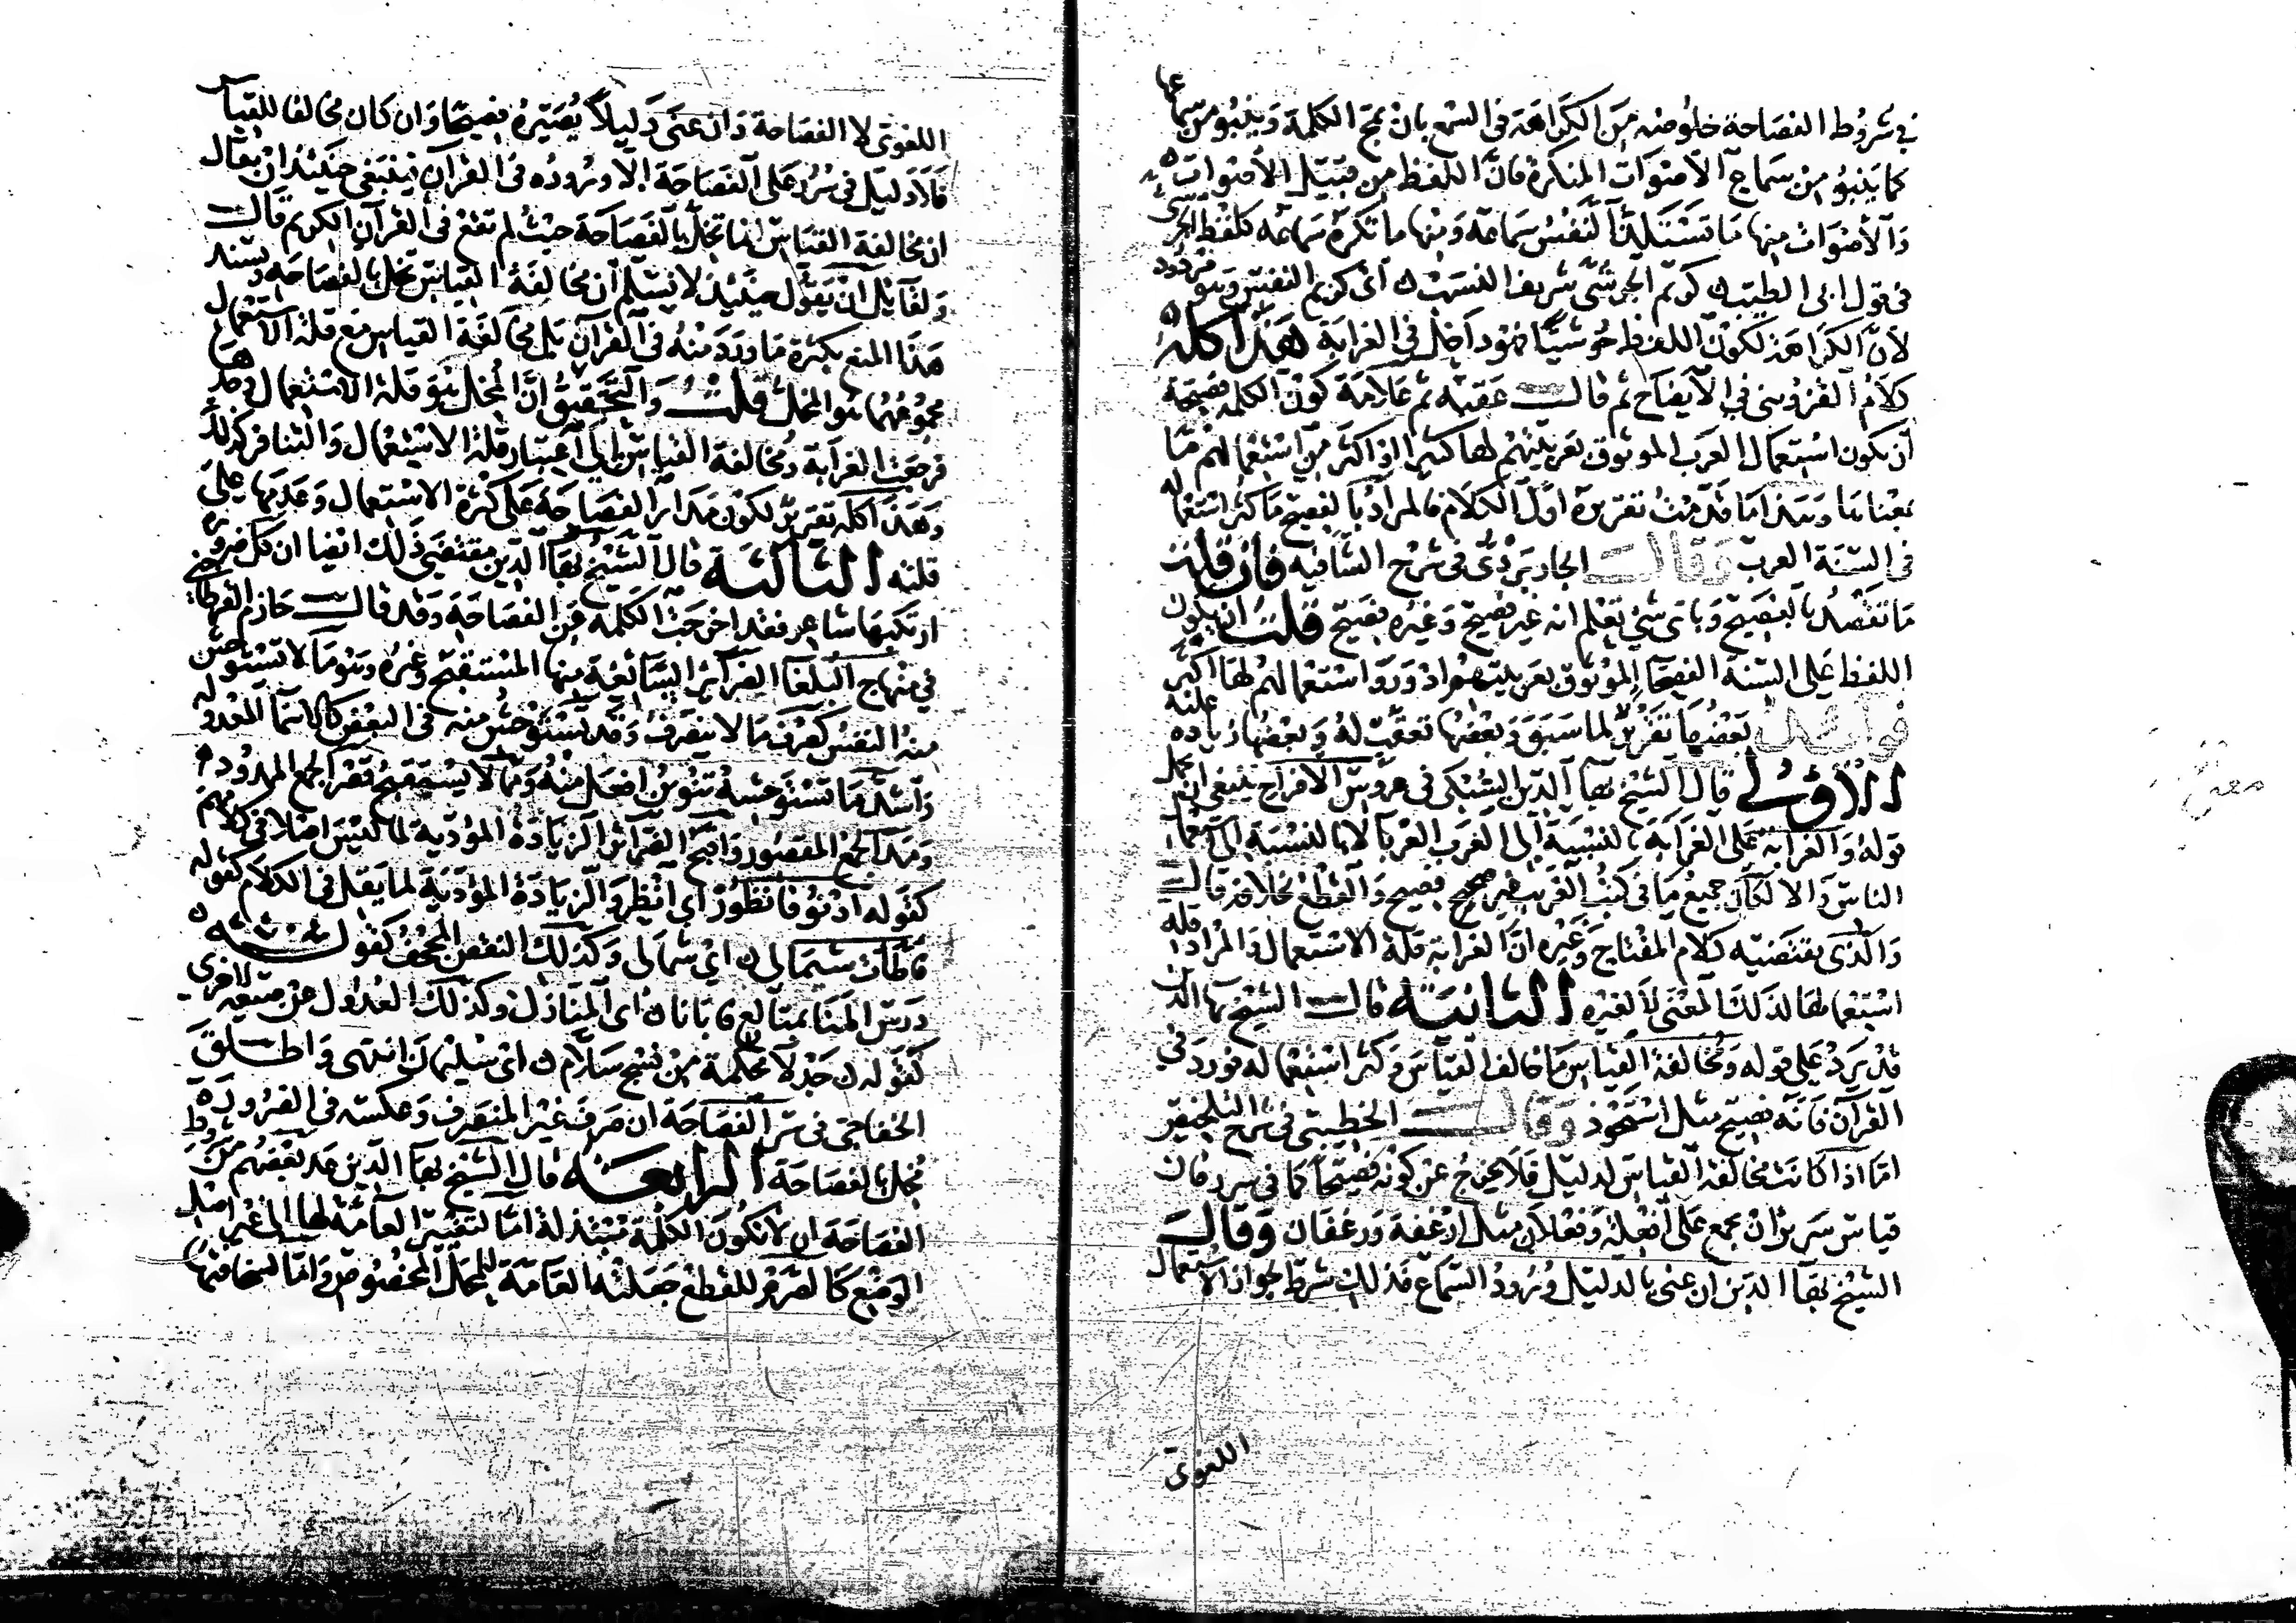 في شروط الفصاحة خلوصه من الكراهة في السمع بان تمج الكلمة وينبو من سماعها
كما ينبو من سماع الأصوات المنكرة فان اللفظ من قبيل الأصوات
والأصوات منها ما تستلذ النفس سماعه ومنها ما تكره سماعه كلفظ الجرشى
في قول ابى الطيب كريم الجرشى شريف النسب اى كريم النفس وهو مردود
لان الكراهة لكون اللفظ حوشيا فهو داخل في الغرابة هذا كله
كلام القزويني في الايضاح ثم قال عقبه ثم علامة كون الكلمة فصيحة
أن يكون استعمال العرب الموثوق بعربيتهم لها كثيرا او اكثر من استعمالهم ما
بمعناها وهذا ما قدمت تقريره اول الكلام فالمراد بالفصيح ما كثر استعماله
في السنة العرب وقال الجاربردى في شرح الشافيه فان قلت
ما تقصد بالفصيح وباى شئ تعلم انه غير فصيح وغيره فصيح قلت ان يكون
اللفظ على السنة الفصحا الموثوق بعربيتهم ادور واستعمالهم لها اكثر
فوائد بعضها تقرير لما سبق وبعضها تعقب له وبعضها زيادة عليه
الاولى قال الشيخ بهآ الدين السبكى في عروس الافراح ينبغى ان يحمل
قوله والغرابة على الغرابة بالنسبة إلى العرب العربا لا بالنسبة الى استعمال
الناس والا لكان جميع ما في كتب الغريب غير فصيح والقطع بخلافه قال
والذى يقتضيه كلام المفتاح وغيره ان الغرابة قلة الاستعمال والمراد قلة
استعمالها لذلك المعنى لا لغيره الثانية قال الشيخ بهآ الدين
قد يرد على قوله ومخالفة القياس ما خالف القياس وكثر استعماله فورد في
القرآن فانه فصيح مثل استحوذ وقال الخطيبى في شرح التلخيص
اما اذا كانت مخالفة القياس لدليل فلا يخرج عن كونه فصيحا كما في سرر فان
قياس سرير ان يجمع على افعلة وفعلان مثل ارغفة ورغفان وقال
الشيخ بهآ الدين ان عنى بالدليل ورود السماع فذلك شرط لجواز الاستعمال
اللغوى
اللغوى لا الفصاحة وان عنى دليلا يصيره فصيحا وان كان مخالفا للقياس
فلا دليل في سرر على الفصاحة الا وروده في القرآن فينبغى حينئذ ان يقال
ان مخالفة القياس انما تخل بالفصاحة حيث لم تقع في القرآن الكريم قال
ولقآيل ان يقول حينئذ لا نسلم أن مخالفة القياس تخل بالفصاحة ويسند
هذا المنع بكثرة ما ورد منه في القرآن بل مخالفة القياس مع قلة الاستعمال
مجموعهما هو المخل قلت والتحقيق ان المخل هو قلة الاستعمال وحدها
فرجعت الغرابة ومخالفة القياس إلى اعتبار قلة الاستعمال والتنافر كذلك
وهذا كله تقرير لكون مدار الفصاحة على كثرة الاستعمال وعدمها على
قلته الثالثة قال الشيخ بهآ الدين مقتضى ذلك ايضا ان كل ضرورة
ارتكبها شاعر فقد اخرجت الكلمة عن الفصاحة وقد قال حازم القرطاجنى
في منهاج البلغا الضرائر السائغة منها المستقبح وغيره وهو ما لا تستوحش
منه النفس كصرف ما لا ينصرف وقد تستوحش منه في البعض كالاسمآ المعدولة
واشد ما تستوحشه تنوين افعل منه ومما لا يستقبح قصر الجمع الممدود
ومد الجمع المقصور واقبح الضرائر الزيادة المؤدية لما ليس اصلا في كلامهم
كقوله ادنو فانظور اى انظر والزيادة المؤدية لما يقل في الكلام كقوله
فاطأت شيمالى اى شمالى وكذلك النقص المجحف كقوله
درس المنا بمتالع فابانا اى المنازل وكذلك العدول عن صيغة لاخرى
كقوله جدلآء محكمة من نسج سلام اى سليمان انتهى واطلق
الخفاجى في سر الفصاحة ان صرف غير المنصرف وعكسه في الضرورة
مخل بالفصاحة الرابعة قال الشيخ بهآ الدين عد بعضهم من شروط
الفصاحة ان لا تكون الكلمة مبتذلة اما لتغيير العامة لها الى غير اصل
الوضع كالصرم للقطع جعلته العامة للمحل المخصوص واما لسخافتها